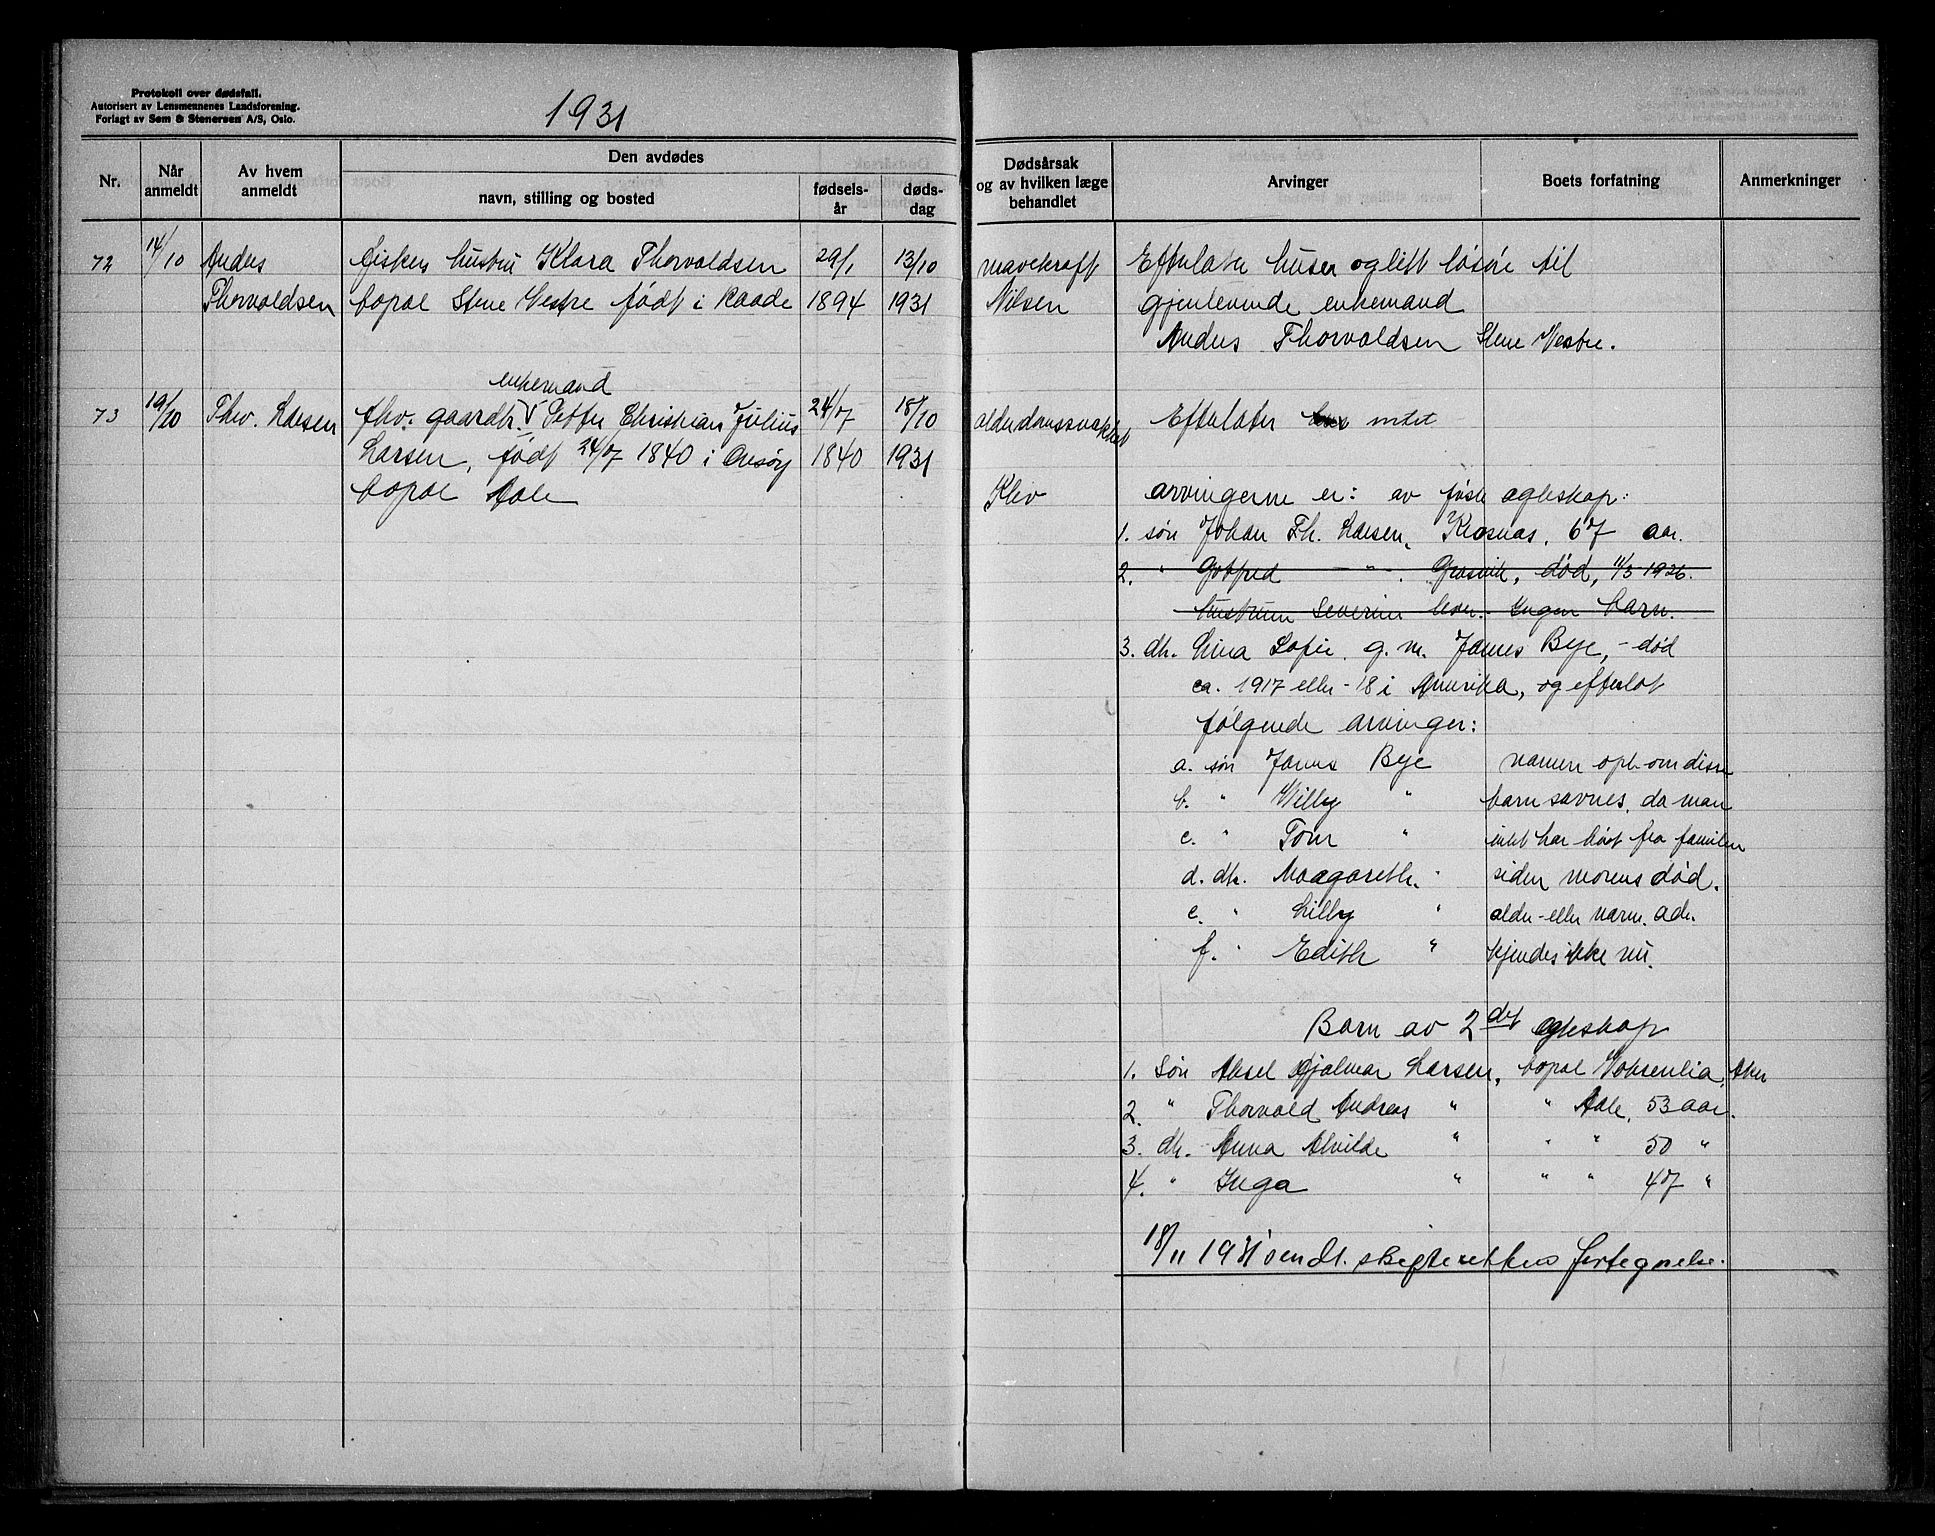 Protokoll over dødsfall.
Autorisert av Lensmennenes Landsforening.
Forlagt av Sem & Stenersen A/S, Oslo.
1931
Nr.
Når anmeldt
Av hvem anmeldt
Den avdødes
navn, stilling og bosted
fødsels-år
døds-dag
Dødsårsak og av hvilken læge behandlet
Arvinger
Boets forfatning
Anmerkninger
72 14/10 Anders Fisker hustru Klara Thorvaldsen 29/1 13/10 mavekræft Efterlater huser og litt løsøre til
Thorvaldsen bopæl Stene Vestre født i Raade 1894 1931 Nilsen gjenlevende enkemand
Anders Thorvaldsen Stene Vestre.
enkemand
73 19/10 Thv. Larsen fhv. gaardbr. Petter Christian Julius 24/7 18/10 alderdomssvakhet Efterlater intet
Larsen, født 24/7 1840 i Onsøy 1840 1931
bopæl Aale Klev arvingerne er: av første egteskap:
1. søn Johan Th. Larsen, 67 aar.
2. " Gotfred " . Græsvik, død, 11/3 1926.
hustruen Severine lever. Ingen barn.
3. dtr. Lina Sofie. g. m. James Bye, - død
ca. 1917 eller -18 i Amerika, og efterlot
følgende arvinger:
a. søn James Bye nærmere opl. om disse
b. " Willy " barn savnes, da man
c. " Tom " intet har hørt fra familien
d. dtr. Maagareth. " siden morens død.
e. " Lilly " alder- eller nærm. adr.
f. " Edith " kjendes ikke nu.
Barn av 2det egteskap
1. Søn Aksel Hjalmar Larsen, bopæl Voksenlia, Aker
2. " Thorvald Andreas " " Aale, 53 aar.
3. dtr. Anna Alvilde " " " 50 "
4. " Inga " " " 47 "
18/11 1931 sendt. skifterettens fortegnelse.